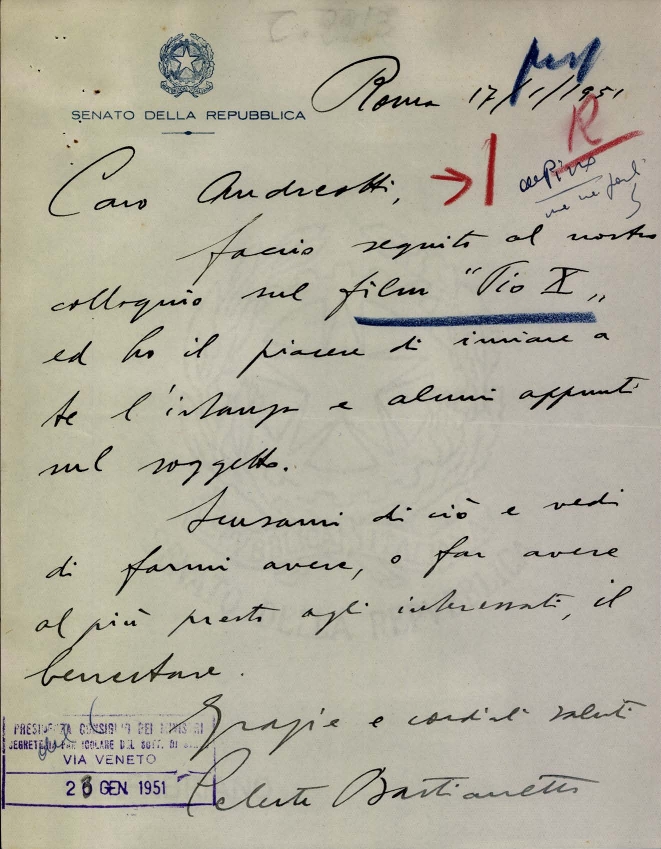 SENATO DELLA REPUBBLICA
Roma 17/1/1951
R
de Pirro
Caro Andreotti,
faccio seguito al nostro
colloquio sul film "Pio X"
ed ho il piacere di inviare a
te l'istanza e alcuni appunti
sul soggetto.
Scusami di ciò e vedi
di farmi avere, o far avere
al più presto agli interessati, il
benestare.
Grazie e cordiali saluti
Celeste Bastianetto
PRESIDENZA CONSIGLIO DEI MINISTRI
SEGRETERIA PARTICOLARE DEL SOTT. DI
VIA VENETO
GEN. 1951